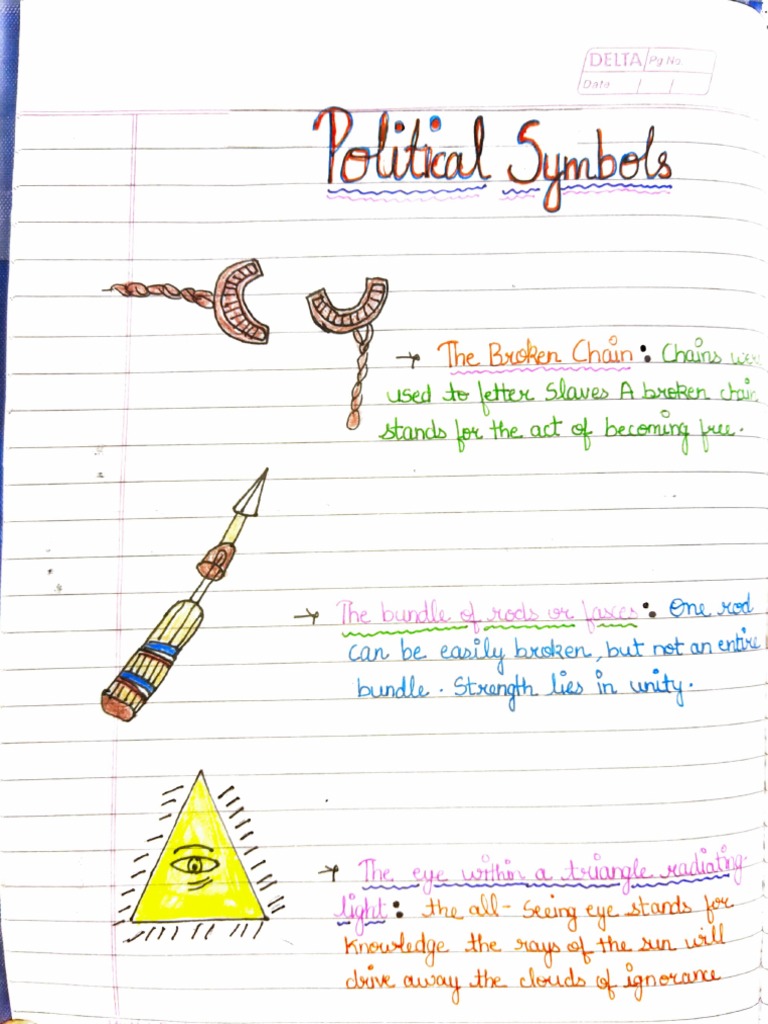 DELTA Pg No.
Date
Political Symbols
→ The Broken Chain : Chains were
used to fetter Slaves A broken chain
stands for the act of becoming free.
→ The bundle of rods or faxes : One rod
can be easily broken, but not an entire
bundle. Strength lies in unity.
→ The eye within a triangle radiating
light : the all-Seeing eye stands for
Knowledge the rays of the sun will
drive away the clouds of ignorance